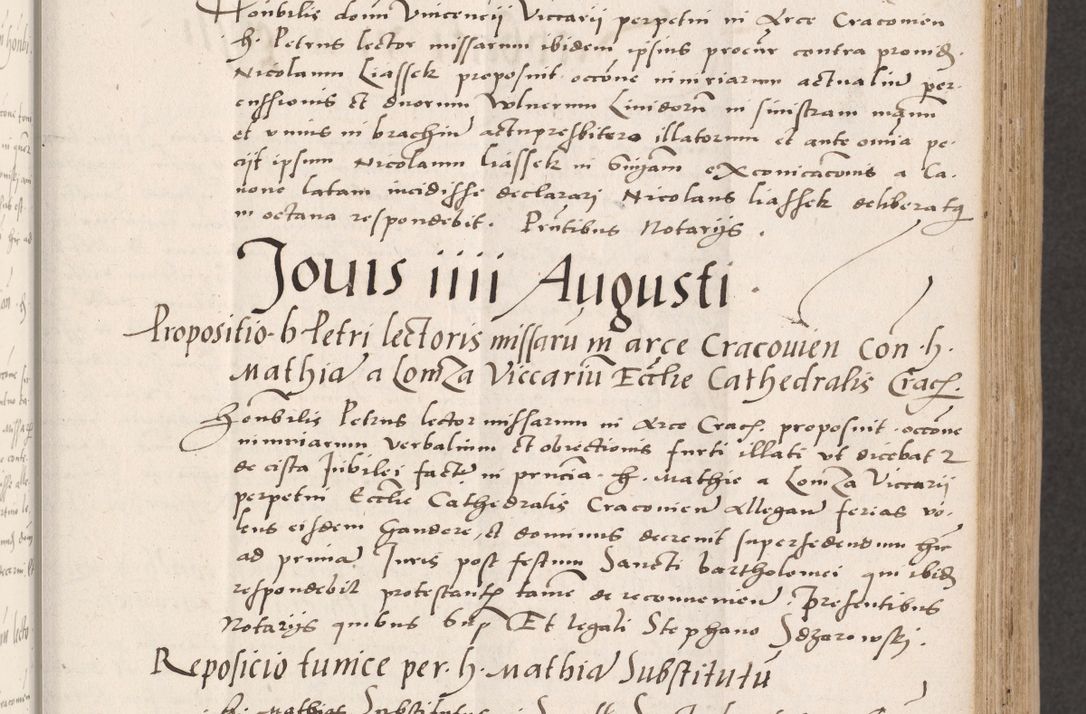 Honbilis domi Vincencij Viccarij perpetui in Arce Cracovien
h. Petrus lector missarum ibidem ipsius procur contra provid.
Nicolaum Liassek proposuit occone iniuriarum actualiu per-
cussionis et duorum Vulnerum Lividoru in sinistram manu
et unius in brachiu actu presbitero illatorum et ante omia pe-
cijt ipsum Nicolaum Liassek in snjam exconicaconis a Ca-
none latam incidisse declarari Nicolaus Liassek deliberatq
in octava respondebit. Pntibus Notarijs.
Jovis iiii Augusti.
Propositio h Petri lectoris missaru in arce Cracovien Con h.
Mathia a Lomza Viccariu Ecclie Cathedralis Crac.
Honbilis Petrus lector missarum in Arce Crac. proposuit occone
iniuriarum verbalium et obiectionis furti illati ut dicebat 2
de cista Jubilei facte in pncia h. Mathie a Lomza Viccarij
perpetui Ecclie Cathedralis Cracovien Allegan ferias vo-
lens eisdem gaudere, et dominus decrevit supersedendum hic
ad prima Juris post festum Sancti bartholomei qui ibid
respondebit protestante tame de reconvenien. Presentibus
Notarijs quibus sup Et legali Stephano Sdzarowskj.
Reposicio tunice per h. Mathia Substitutu
h. Mathias Substitutus